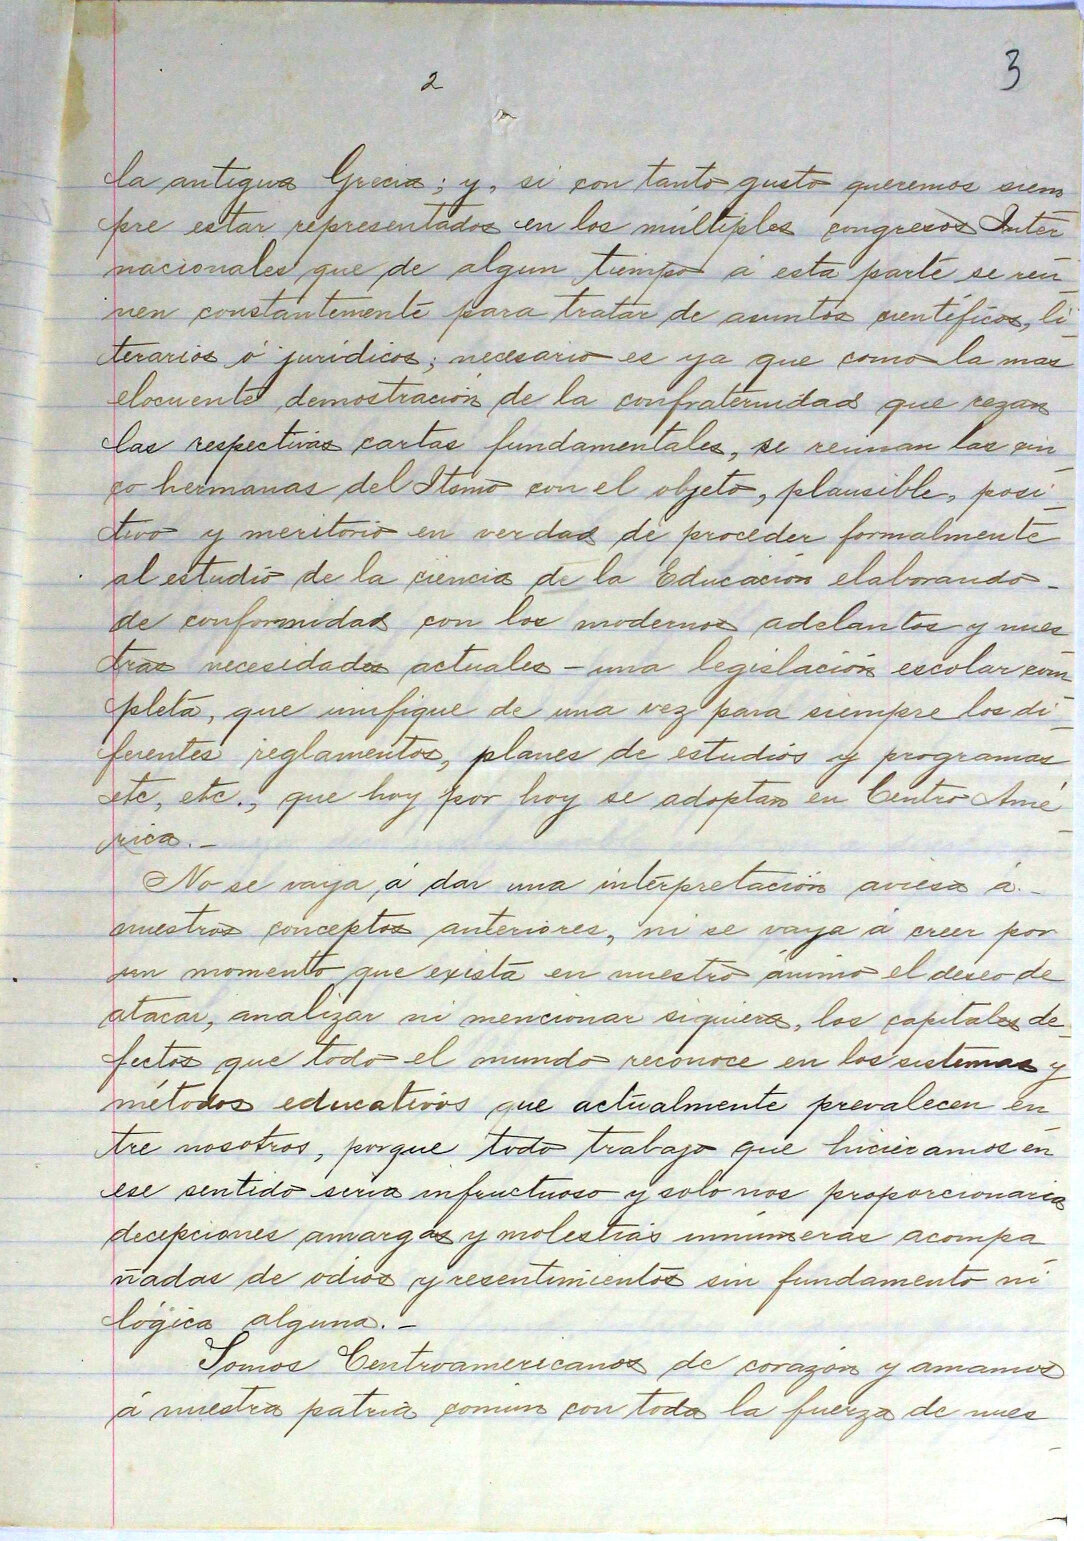 2
3
la antigua Grecia; y, si con tanto gusto queremos siem
pre estar representados en los múltiples congresos Inter
nacionales que de algun tiempo á esta parte se reú-
nen constantemente para tratar de asuntos científicos, li-
terarios ó jurídicos; necesario es ya que como la mas
elocuente demostración de la confraternidad que rezan
las respectivas cartas fundamentales, se reunan las cin-
co hermanas del Itsmo con el objeto, plausible, posi-
tivo y meritorio en verdad de proceder formalmente
al estudio de la ciencia de la Educación elaborando-
de conformidad con los modernos adelantos y nues
tras necesidades actuales - una legislación escolar com-
pleta, que unifique de una vez para siempre los di-
ferentes reglamentos, planes de estudios y programas
etc, etc., que hoy por hoy se adoptan en Centro Amé-
rica.-
No se vaya á dar una interpretación aviesa á.-
nuestros conceptos anteriores, ni se vaya á creer por
un momento que exista en nuestro ánimo el deseo de
atacar, analizar ni mencionar siquiera, los capitales de-
fectos que todo el mundo reconoce en los sistemas y
métodos educativos que actualmente prevalecen en-
tre nosotros, porque todo trabajo que hicieramos en
ese sentido seria infructuoso y solo nos proporcionaria
decepciones amargas y molestias innúmeras acompa-
ñadas de odios y resentimientos sin fundamento ni
lógica alguna.-
Somos Centroamericanos de corazón y amamos
á nuestra patria común con toda la fuerza de nues-